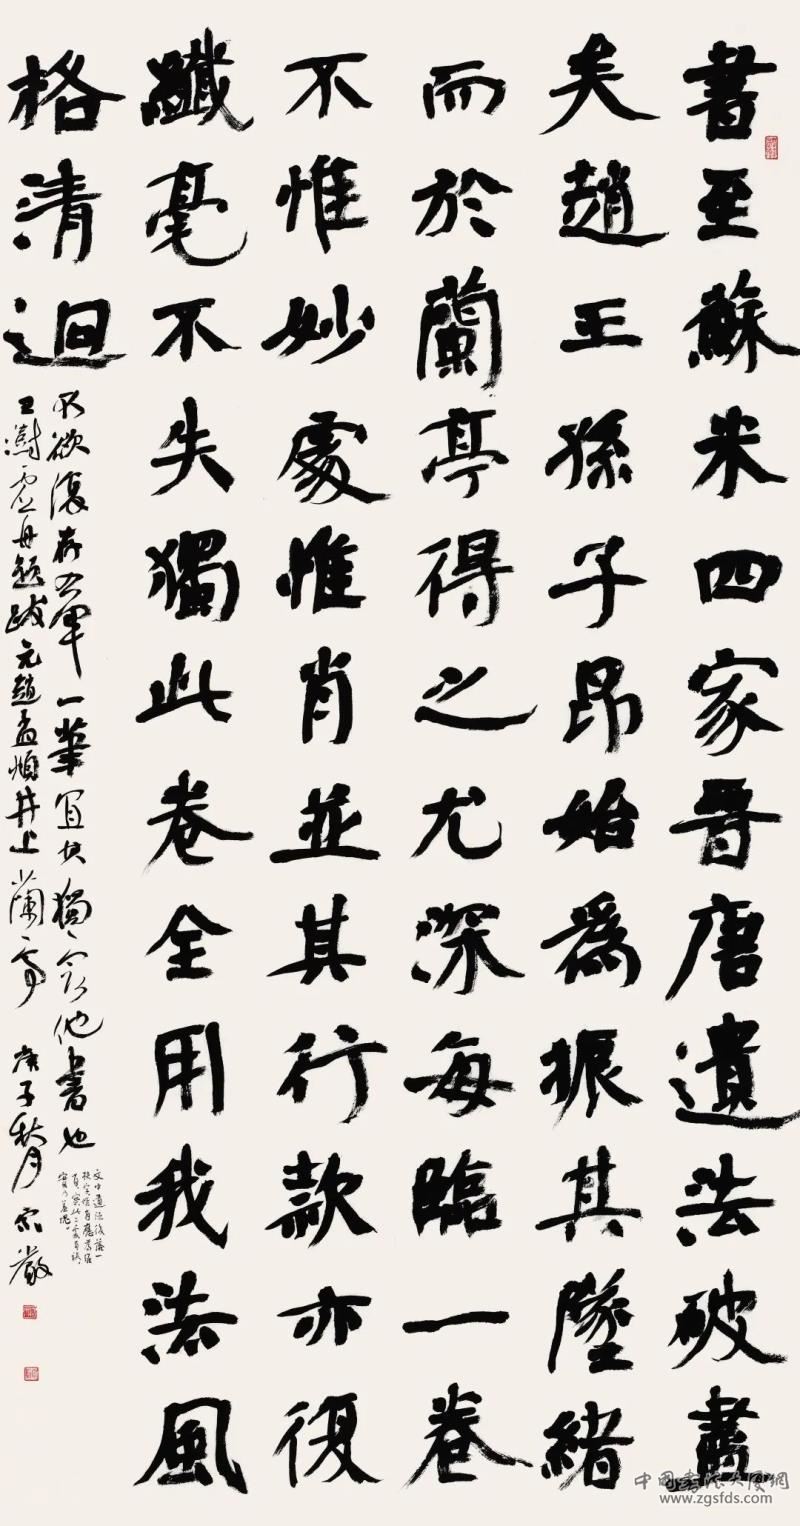 書至蘇米四家晉唐遺法破盡
矣趙王孫子昂始為振其墜緒
而於蘭亭得之尤深每臨一卷
不惟妙處惟肖並其行款亦復
纖毫不失獨此卷全用我法風
格清迥
不欲復存右軍一筆宜其獨冠他書也
王澍虛舟題跋元趙孟頫井上蘭亭 庚子秋月
中國書法大厦網
www.zgsfds.com